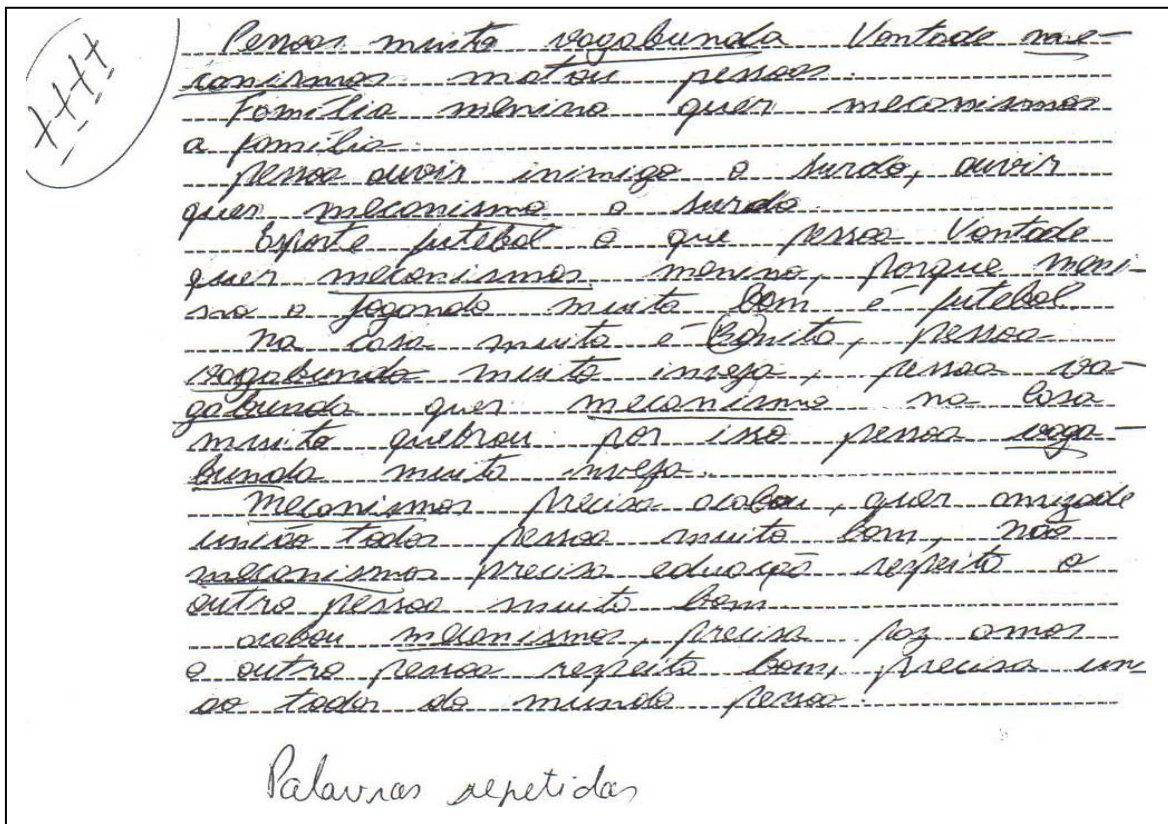 Pessoas muito vagabunda Vontade me-
canismos matou pessoas.
Família menino quer mecanismos
a família.
pessoa ouvir inimigo o surdo, ouvir
quer mecanismo o surdo.
Esporte futebol o que pessoa Vontade
quer mecanismos menino, porque meni-
no o jogando muito bom é futebol.
Na casa muito é Bonita, pessoa
vagabunda muito inveja, pessoa va-
gabunda quer mecanismo na casa
muito quebrou por isso pessoa vaga-
bunda muito inveja.
Mecanismos precisa acabou, quer amizade
união todos pessoa muito bom, não
mecanismos precisa educação respeito o
outro pessoa muito bom
acabou mecanismos, precisa paz amos
o outro pessoa respeito bom, precisa un
ao todos do mundo pessoa.
Palavras repetidas